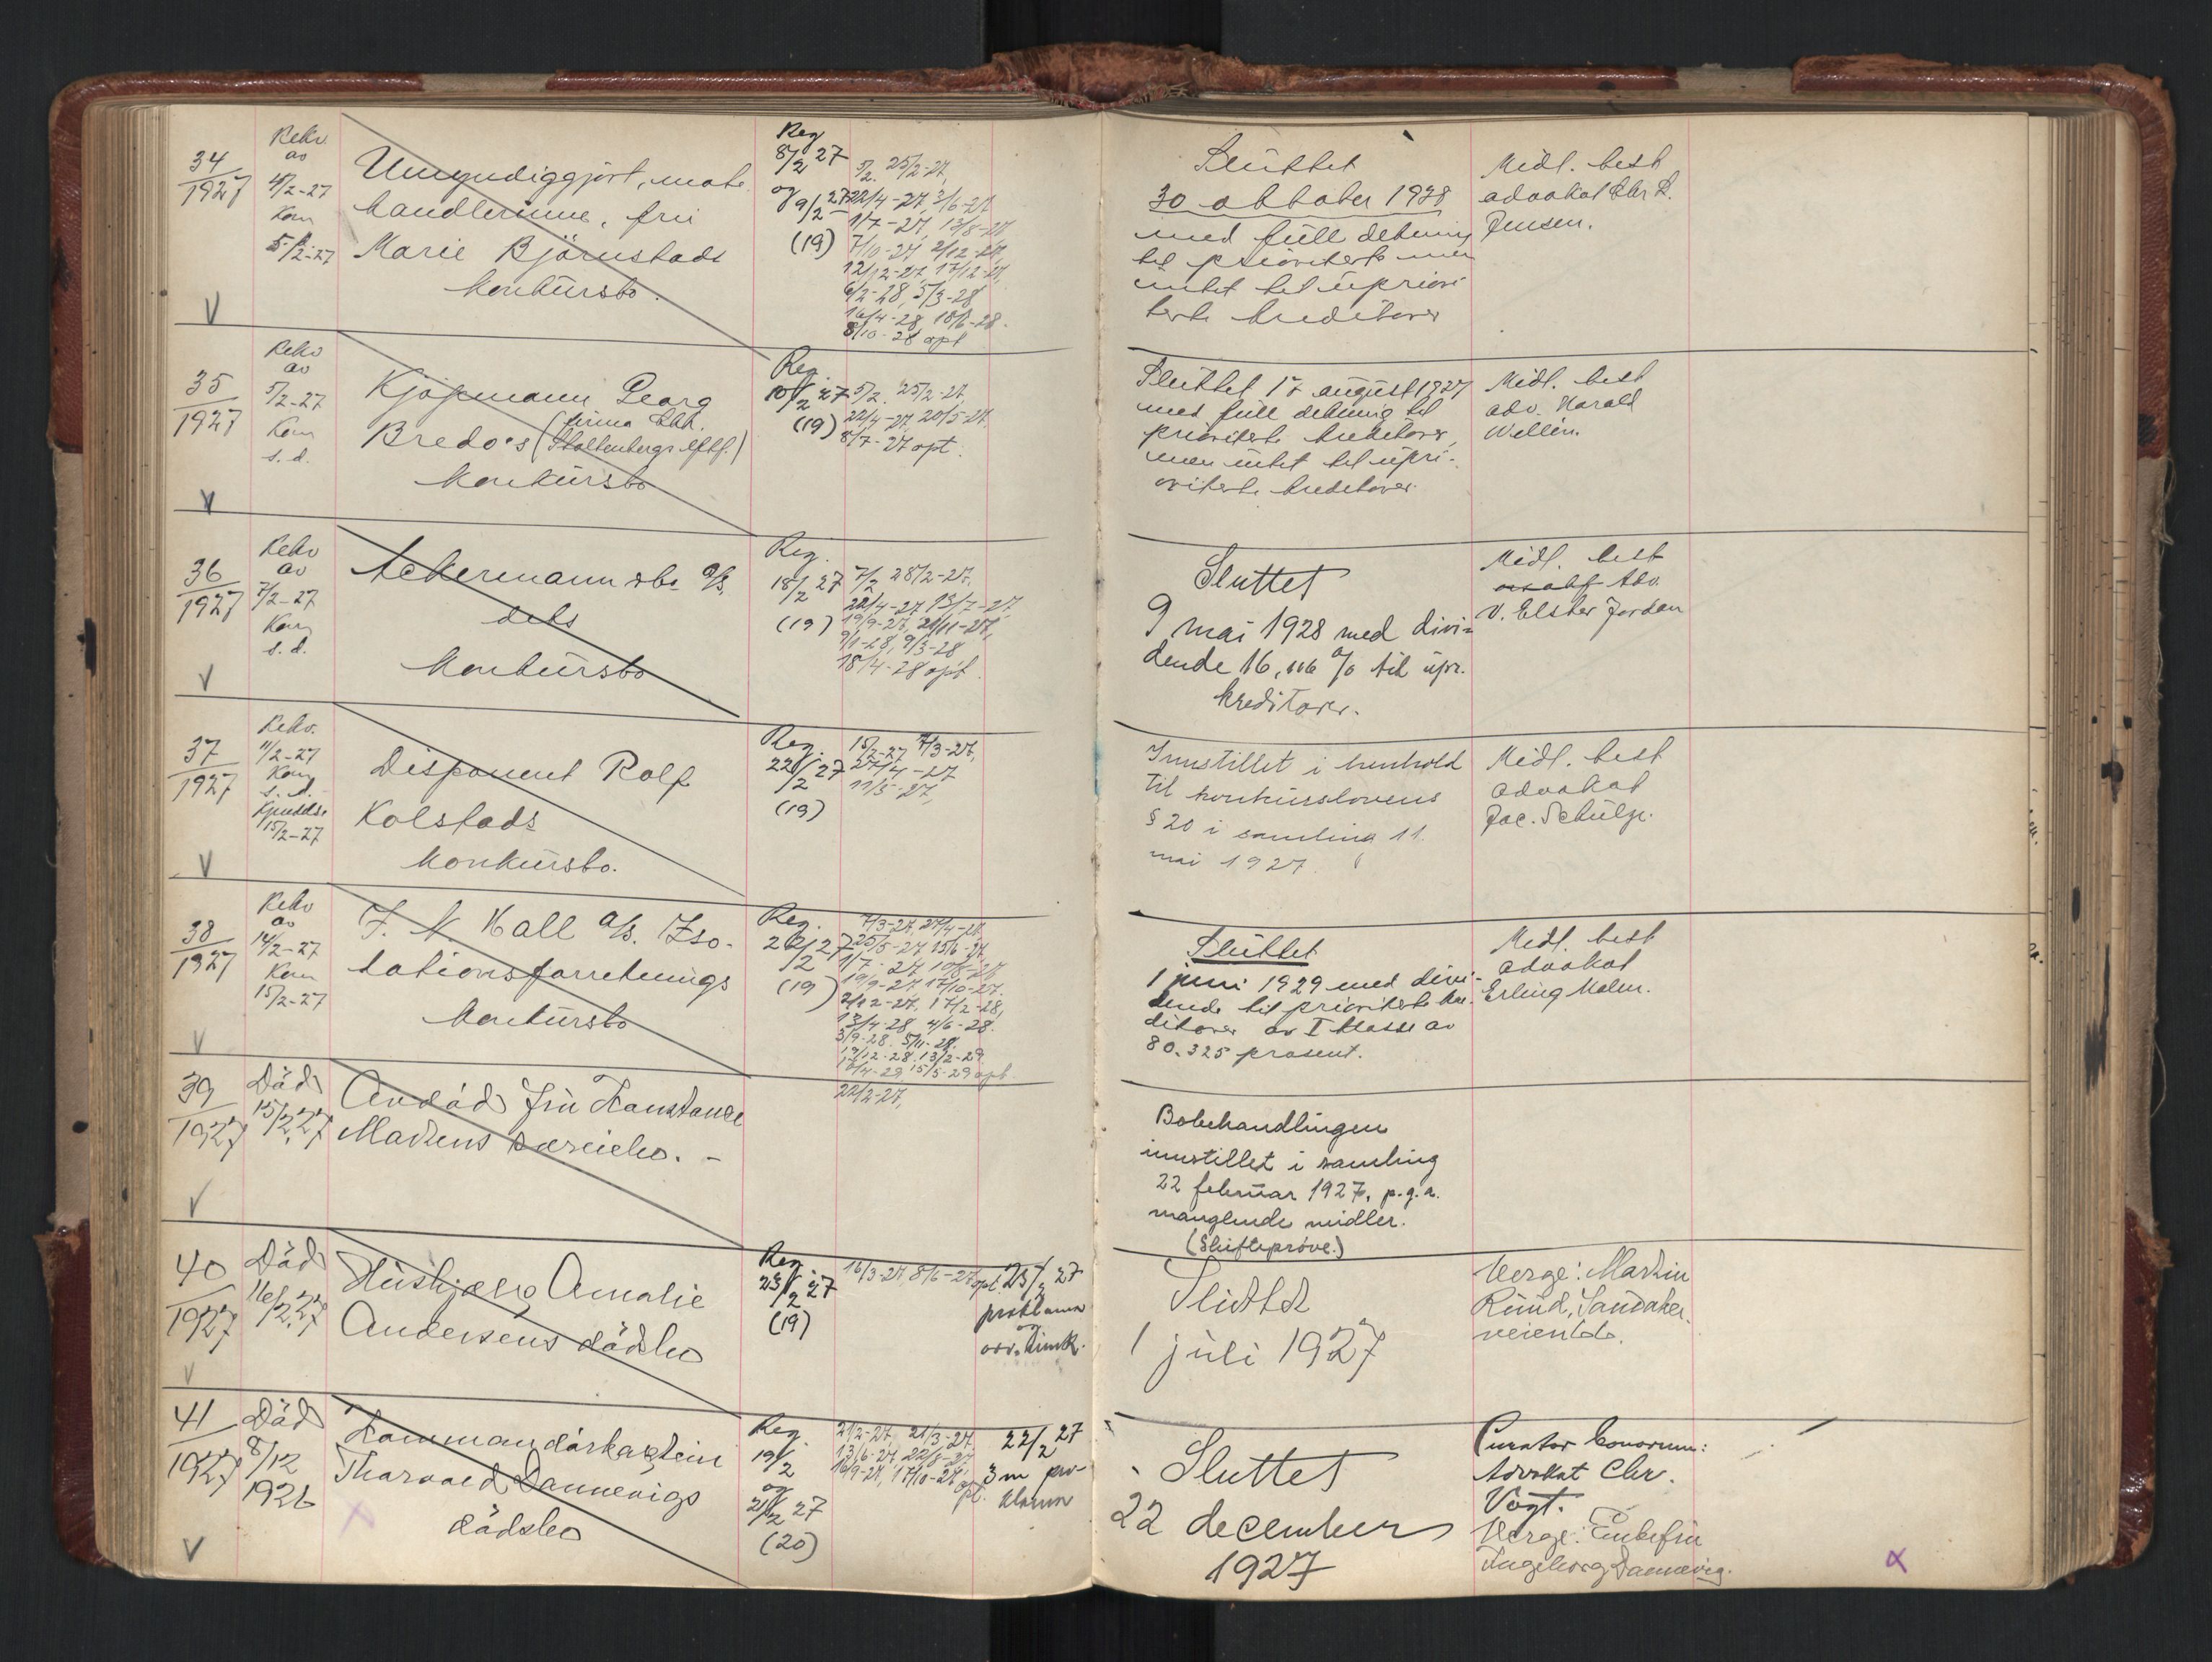 34
1927
Rekv.
av
4/2-27
Kom
5/2-27
V
Umyndiggjort, mote
handlerinne, frü
Marie Björnstads
konkürsbo.
Reg
8/2 27
og 9/2 27
(19)
5/2. 25/2-27,
22/4-27, 3/6-27
1/7-27, 13/8-27
7/10-27, 2/12-27,
12/12-27, 17/12-27,
6/2-28, 5/3-28
16/4-28, 18/6-28.
8/10-28 opt
Slüttet
30 oktober 1928
med füll dekning
til prioriterte men
intet til üpriori
terte kreditorer
Midl. best
advokat Chr L.
Jensen.
35
1927
Rekv
av
5/2-27
Kom
s. d.
V
Kjøpmann Georg
Bredo's (firma Chr.
Stoltenbergs eftf.)
konkürsbo
Reg.
10/2 27
(19)
5/2. 25/2-27,
22/4-27, 20/5-27,
8/7-27 opt.
Slüttet 17 august 1927
med füll dekning til
prioriterte kreditorer,
men intet til üpri-
oriterte kreditorer.
Midl. best
adv. Harald
Wellén.
36
1927
Rekv
av
7/2-27
Kom
s. d.
V
Ackermann & Co A/S.
dets
konkürsbo
Reg.
18/2 27
(19)
7/2 28/2-27,
22/4-27, 13/7-27,
19/9-27, 21/11-27,
9/1-28, 9/3-28
18/4-28 opt.
Sluttet
9 mai 1928 med divi=
dende 16,116 % til üpr.
kreditorer.
Midl. best
Adv.
V. Elster Jordan
37
1927
Rekv.
11/2-27
Kom
s. d.
Kjendelse
15/2-27
V
Disponent Rolf
Kolstads
konkürsbo.
Reg.
22/2 27
(19)
15/2-27, 7/3-27,
27/4-27
11/5-27,
Innstillet i henhold
til konkürslovens
§ 20 i samling 11.
mai 1927.
Midl. best
advokat
Jac. Schülze.
38
1927
Rekv
av
14/2-27
Kom
15/2-27
V
J. N. Hall A/S. Iso-
lationsforretnings
konkürsbo
Reg.
22/2 27
(19)
7/3-27, 27/4-27,
25/5-27, 15/6-27,
1/7-27, 10/8-27
19/9-27, 17/10-27.
2/12-27, 17/2-28,
13/4-28, 4/6-28.
3/9-28. 5/11-28.
19/12-28. 13/2-29.
17/4-29. 15/5-29 opt.
Slüttet
1 juni 1929 med divi-
dende til prioriterte kre-
ditorer av I klasse av
80.325 prosent.
Midl. best
advokat
Erling Malm.
39
1927
Död
15/2.27
V
Avdöd frü Konstance
Madsens særiebo. -
22/2-27,
Bobehandlingen
innstillet i samling
22 februar 1927, p.g.a.
manglende midler.
(Skifteprøve.)
40
1927
Död
16/2.27
V
Hüshjelp Amalie
Andersens dödsbo
Reg.
23/2 27
(19)
16/3-27, 8/6-27 opt.
23/2 27
proklama
og
arv. innk.
Sluttet
1 juli 1927
Verge: Martin
Rüud, Sandaker-
veien
41
1927
Död
8/12
1926
V
Kommandörkaptein
Thorvald Dannevigs
dödsbo
Reg.
19/2
og
21/2 27
(20)
21/2-27, 21/3-27,
13/6-27, 22/8-27,
16/9-27, 17/10-27,
opt.
22/2 27
3 m pro-
klama
Sluttet
22 december
1927
Curator bonorum:
Advokat Chr.
Vogt.
Verge: Enkefrü
Ingeborg Dannevig.
x